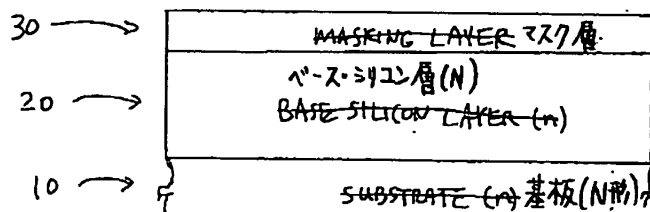 30 MASKING LAYER マスク層
ベース・シリコン層(N)
20 BASE SILICON LAYER (n)
10 SUBSTRATE (n) 基板(N形)